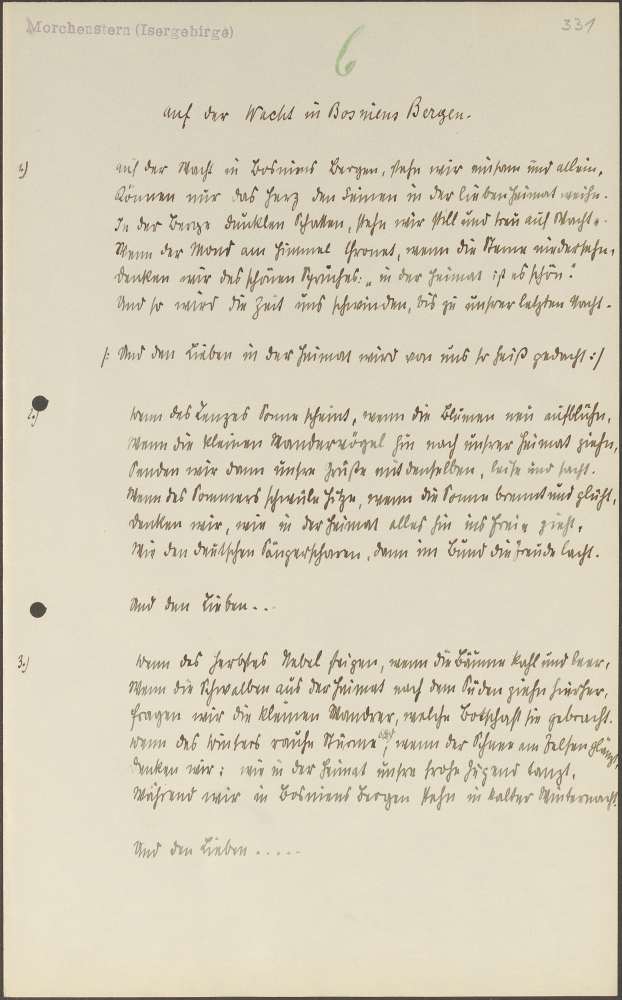 Morchenstern (Isergebirge)
331
6
Auf der Wacht in Bosniens Bergen.
1.) Auf der Wacht in Bosniens Bergen, stehn wir einsam und allein,
Können nur das Herz den Seinen in der lieben Heimat weihn.
In der Berge dunklen Schatten, stehn wir still und treu auf Wacht.
Wenn der Mond am Himmel thronet, wenn die Sterne niedersehn,
Denken wir des schönen Spruches: „in der Heimat ist es schön."
Und so wird die Zeit uns schwinden, bis zu unsrer letzten Wacht.
/: Und den Lieben in der Heimat wird von uns so heiß gedacht :/
2.) Wenn des Lenzes Sonne scheint, wenn die Blumen neu aufblühn,
Wenn die kleinen Wandervögel hin nach unsrer Heimat ziehn,
Senden wir dann unsre Grüße mit denselben, leise und sacht.
Wenn des Sommers schwüle Hitze, wenn die Sonne brennt und glüht,
Denken wir, wie in der Heimat alles hin ins Freie zieht,
Wie den deutschen Sängerscharen, dann im Bund die Freude lacht.
Und den Lieben...
3.) Wenn des Herbstes Nebel steigen, wenn die Bäume kahl und leer,
Wenn die Schwalben aus der Heimat nach dem Süden ziehn hierher,
Fragen wir die kleinen Wandrer, welche Botschaft sie gebracht.
Wenn des Winters rauhe Stürme, wenn der Schnee am Felsen glänzt,
Denken wir: wie in der Heimat unsre frohe Jugend tanzt,
Während wir in Bosniens Bergen stehn in kalter Winternacht.
Und den Lieben.....